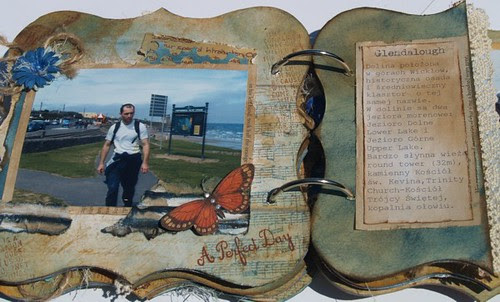 A Perfect Day
Glendalough
Dolina położona
w górach Wicklow,
historyczna osada
i średniowieczny
klasztor o tej
samej nazwie.
W dolinie są dwa
jeziora morenowe:
Jezioro Dolne
Lower Lake i
Jezioro Górne
Upper Lake.
Bardzo słynna wieża
round tower (32m),
kamienny Kościół
św. Kevina, Trinity
Church-Kościół
Trójcy Świętej,
kopalnia ołowiu.